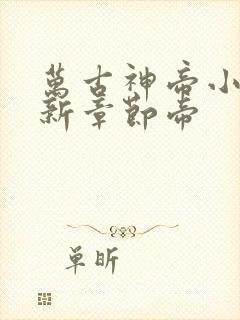 萬古神帝小
新章節帝
单昕